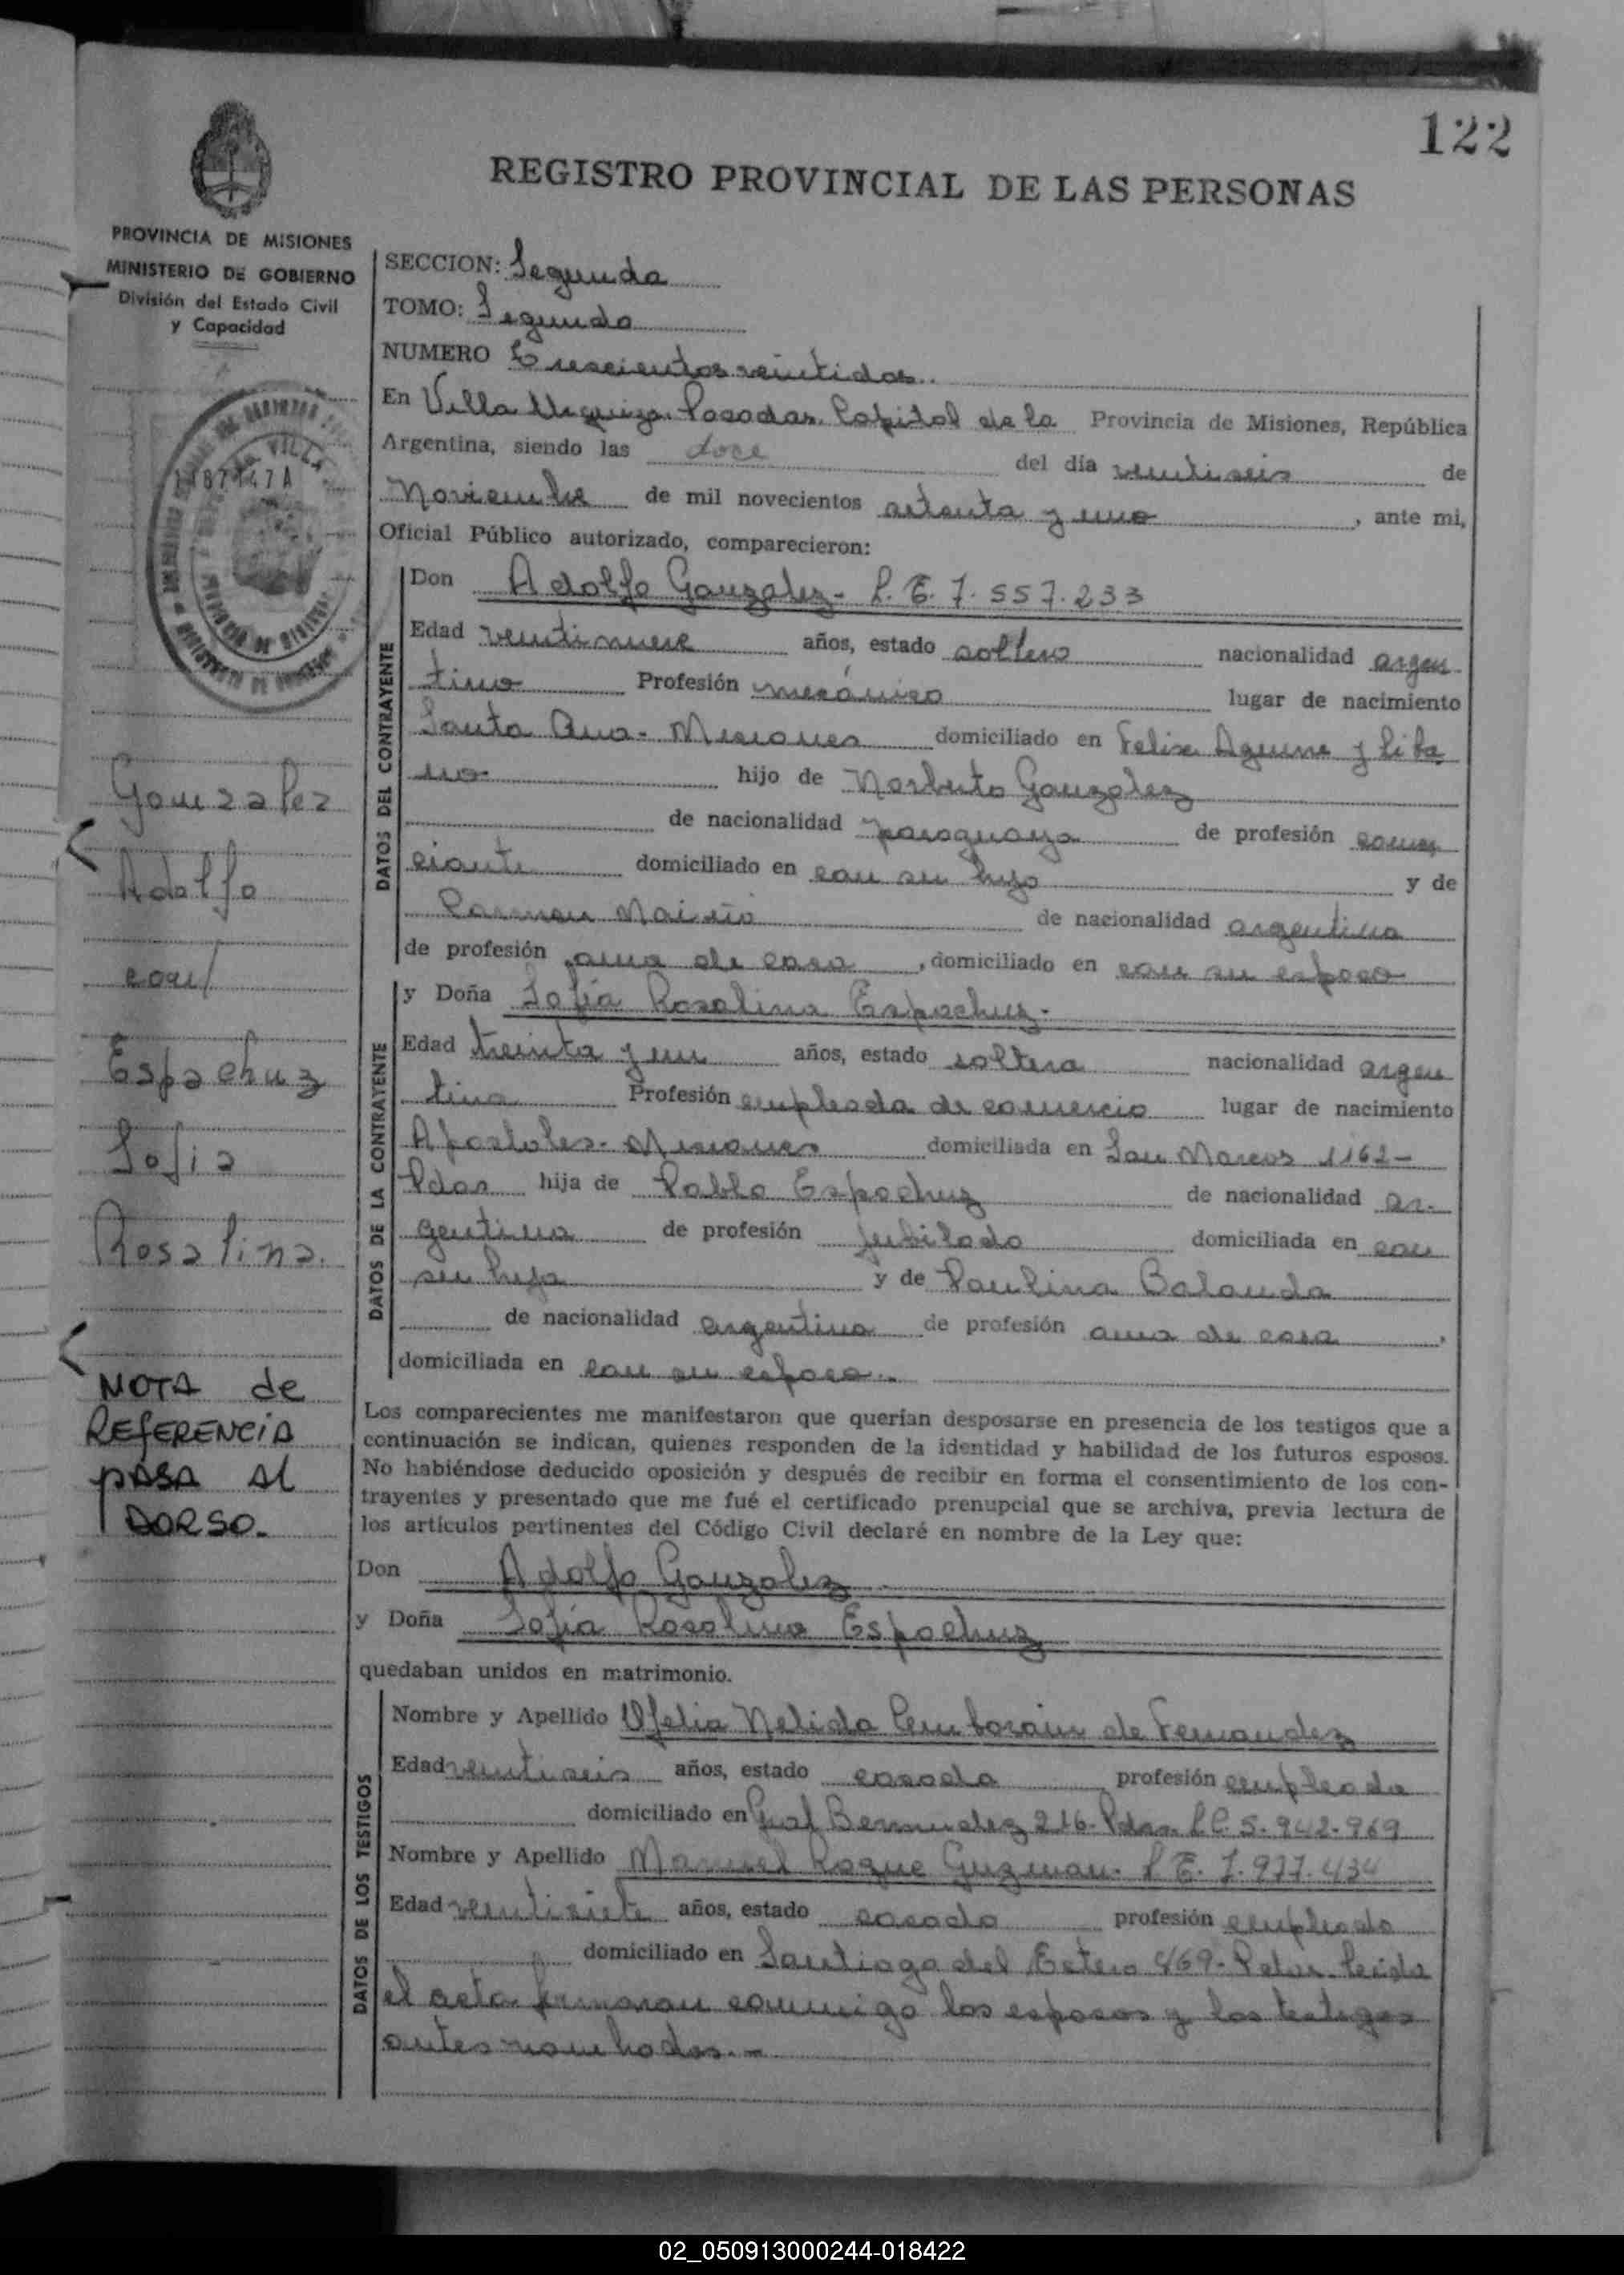 122
REGISTRO PROVINCIAL DE LAS PERSONAS
PROVINCIA DE MISIONES
MINISTERIO DE GOBIERNO
División del Estado Civil
y Capacidad
1187147A
Gonzalez
Adolfo
con/
Espachuz
Sofia
Rosalina.
NOTA de
REFERENCIA
PASA Al
DORSO.
SECCION: Segunda
TOMO: Segundo
NUMERO Trescientos veintidos.
En Villa Urquiza. Posadas. Capital de la Provincia de Misiones, República
Argentina, siendo las doce del día veintiseis de
Noviembre de mil novecientos setenta y uno, ante mi,
Oficial Público autorizado, comparecieron:
DATOS DEL CONTRAYENTE
Don Adolfo Gonzalez- L.E. 7.557.233
Edad veintinueve años, estado soltero nacionalidad argen-
tino Profesión mecánico lugar de nacimiento
Santa Ana- Misiones domiciliado en Felix Aguirre y Liba
no hijo de Norberto Gonzalez
de nacionalidad paraguaya de profesión comer
ciante domiciliado en con su hijo y de
Carmen de nacionalidad argentina
de profesión ama de casa, domiciliado en con su esposo
DATOS DE LA CONTRAYENTE
y Doña Sofia Rosalina Espachuz.
Edad treinta y un años, estado soltera nacionalidad argen
tina Profesión empleada de comercio lugar de nacimiento
Apostoles- Misiones domiciliada en San Marcos 1162-
Pdas hija de Pablo Espachuz de nacionalidad ar-
gentina de profesión jubilado domiciliada en con
su hija y de Paulina Balanda
de nacionalidad argentina de profesión ama de casa,
domiciliada en con su esposo.-
Los comparecientes me manifestaron que querían desposarse en presencia de los testigos que a
continuación se indican, quienes responden de la identidad y habilidad de los futuros esposos.
No habiéndose deducido oposición y después de recibir en forma el consentimiento de los con-
trayentes y presentado que me fué el certificado prenupcial que se archiva, previa lectura de
los artículos pertinentes del Código Civil declaré en nombre de la Ley que:
Don Adolfo Gonzalez
y Doña Sofia Rosalina Espachuz
quedaban unidos en matrimonio.
DATOS DE LOS TESTIGOS
Nombre y Apellido Ofelia Nelida Cemborain de Fernandez
Edad veintiseis años, estado casada profesión empleada
domiciliado en Gral Bermudez 216- Pdas. L.C. 5.942.969
Nombre y Apellido Manuel Roque Guzman. L.E. 7.977.434
Edad veintisiete años, estado casado profesión empleado
domiciliado en Santiago del Estero 469- Pdas. Leida
el acta firmaron conmigo los esposos y los testigos
antes nombrados.-
02_050913000244-018422